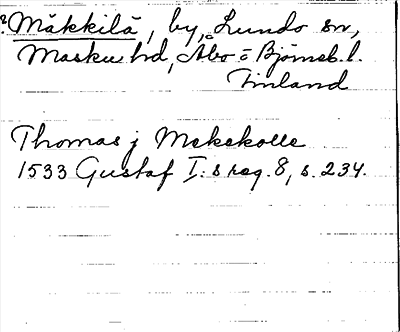 ?Mäkkilä, by, Lundo sn,
Masku hd, Åbo o Björneb. l.
Finland
Thomas j Mekekolle
1533 Gustaf I:s reg. 8, s. 234.